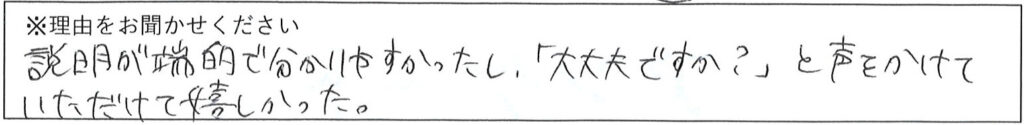 ※理由をお聞かせください
説明が端的で分かりやすかったし、「大丈夫ですか?」と声をかけて
いただけて嬉しかった。